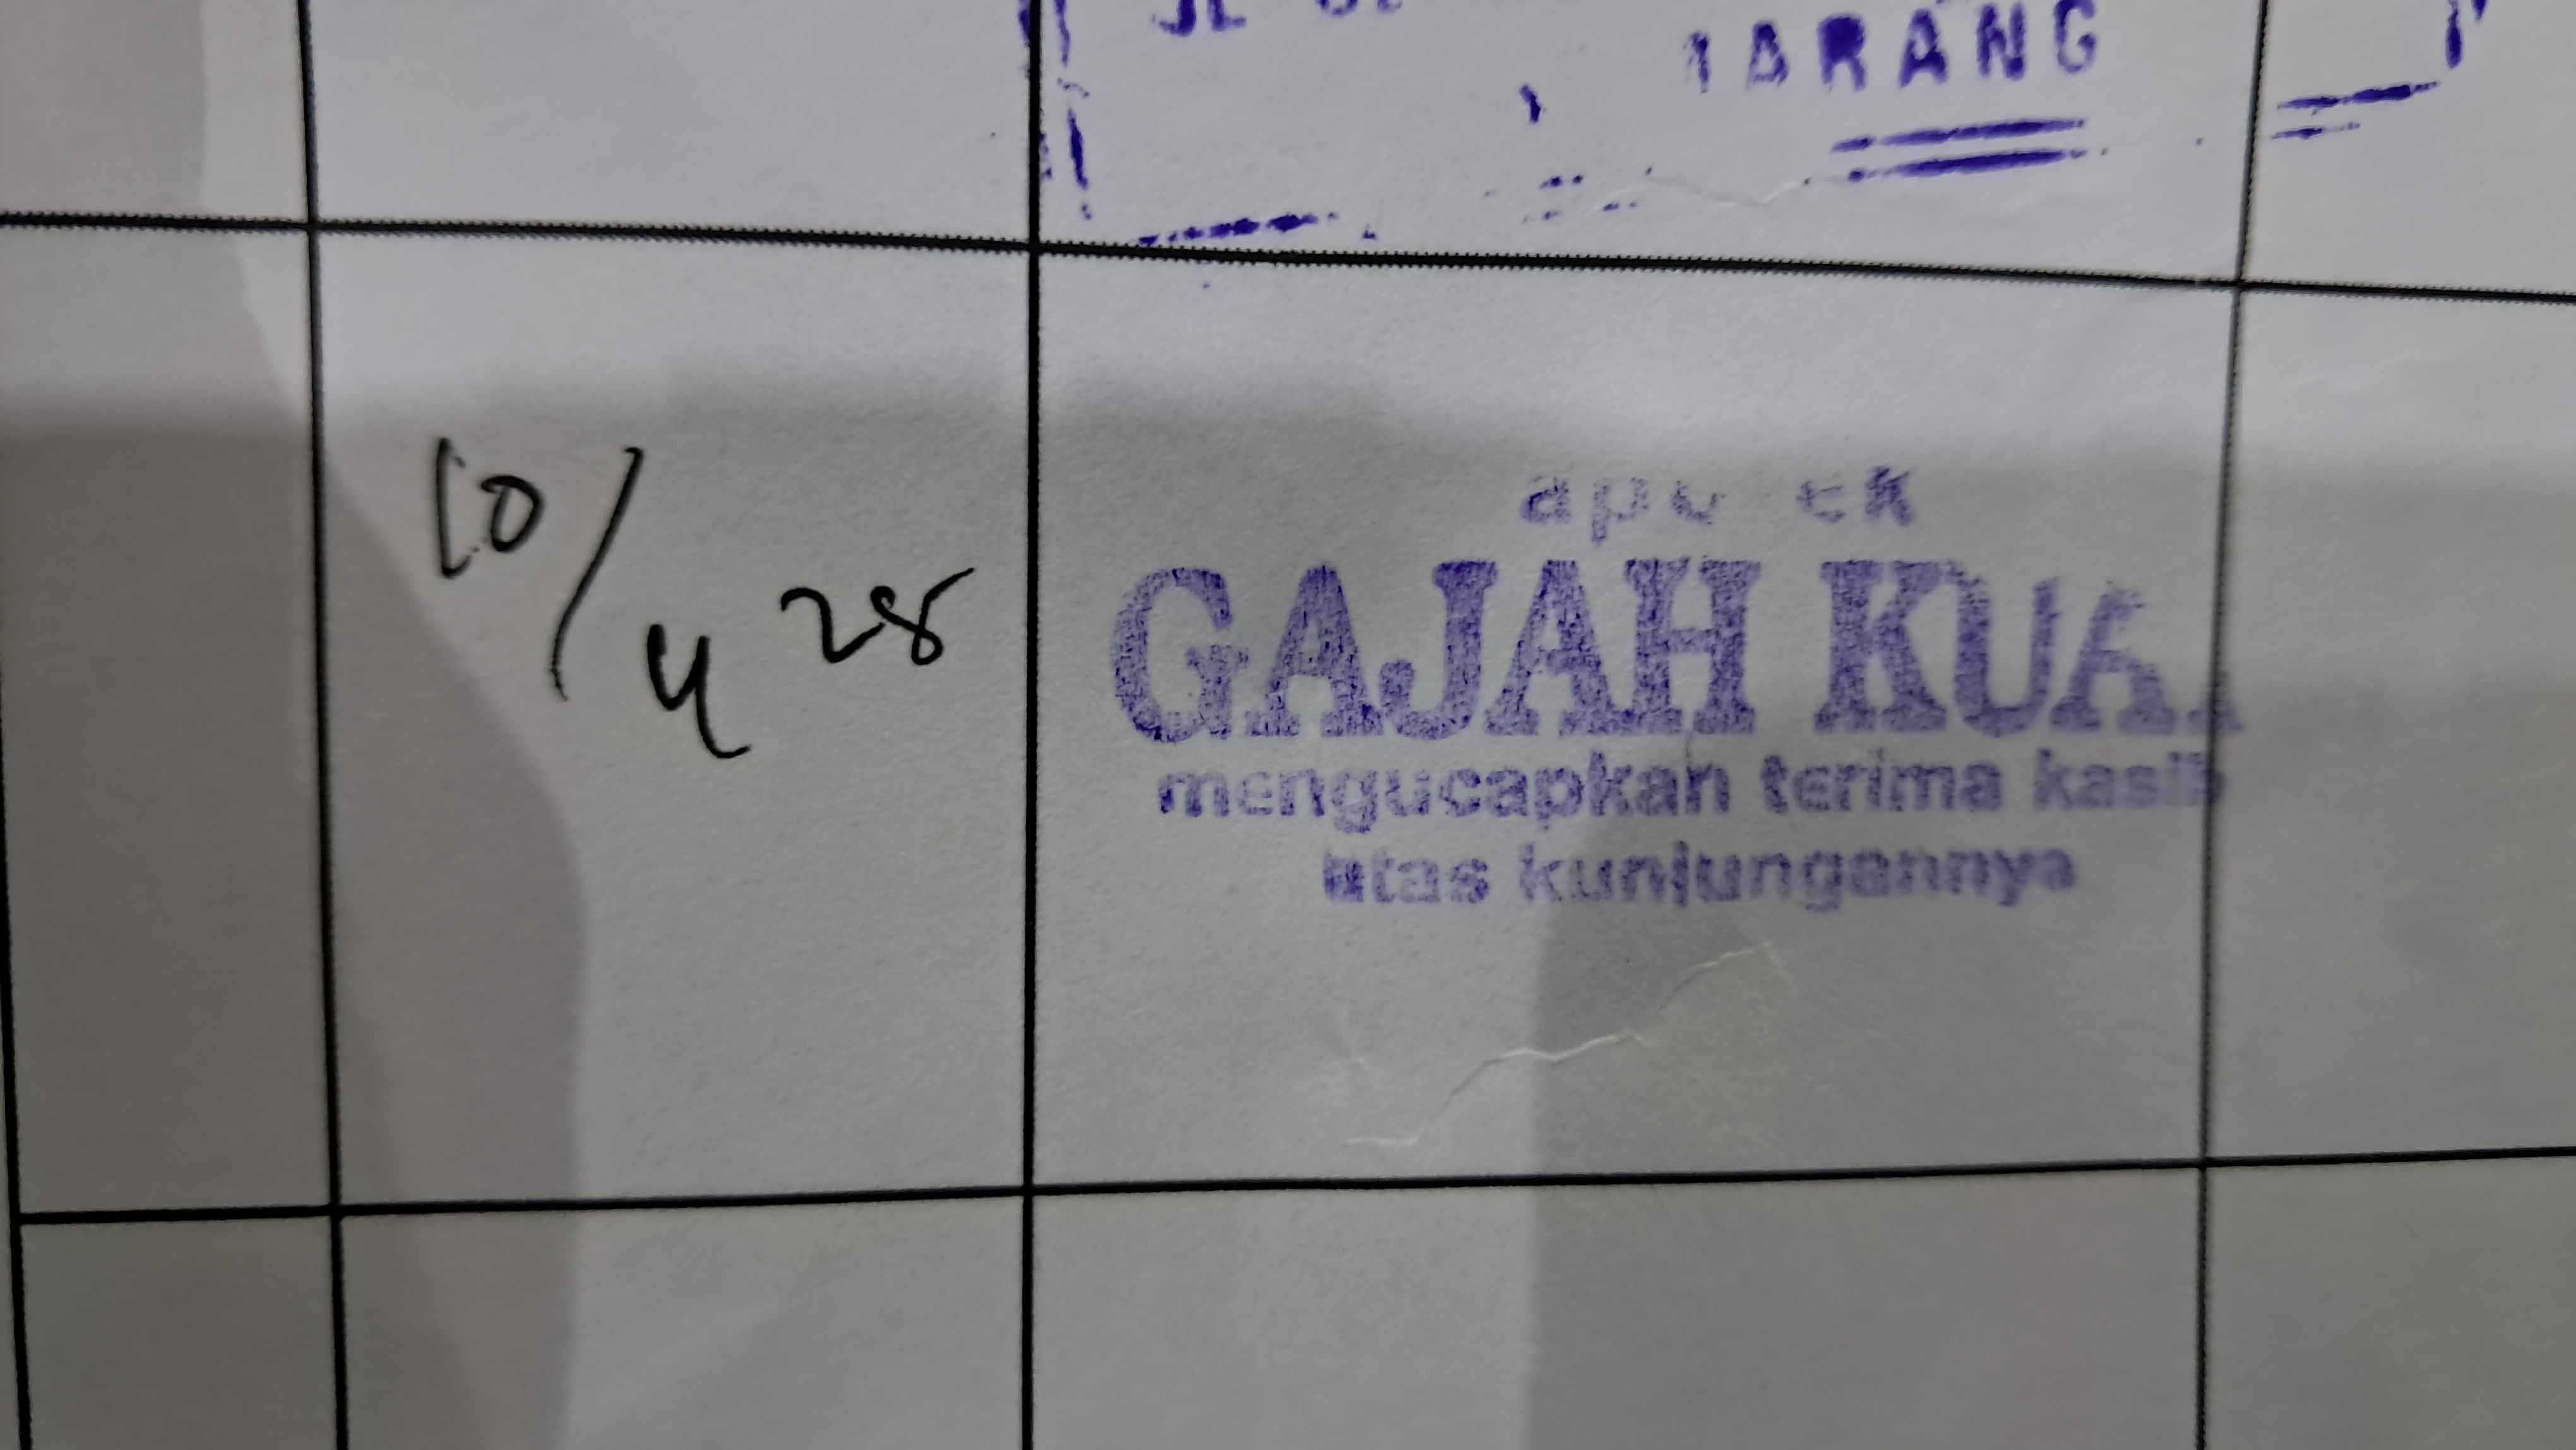 10/4 28
apotek
GAJAH
mengucapkan terima kasih
atas kunjungannya